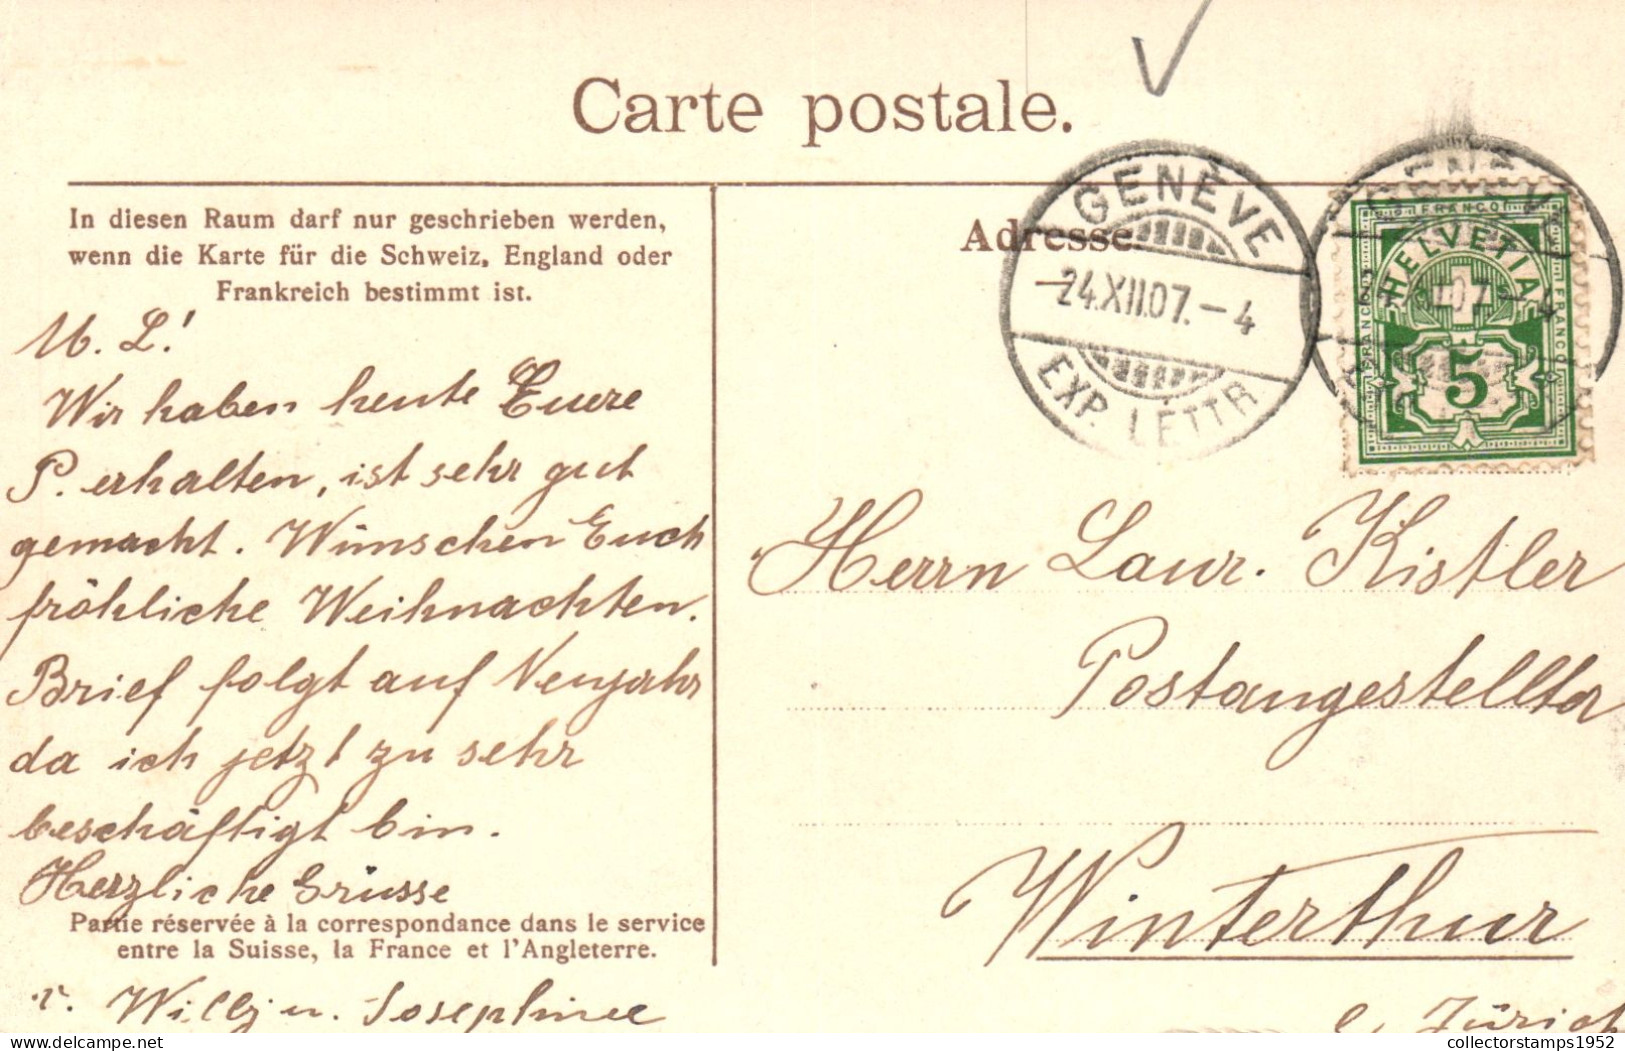 Carte postale.
In diesen Raum darf nur geschrieben werden,
wenn die Karte für die Schweiz, England oder
Frankreich bestimmt ist.
M. L!
Wir haben heute Euere
P. erhalten, ist sehr gut
gemacht. Wünschen Euch
fröhliche Weihnachten.
Brief folgt auf Neujahr
da ich jetzt zu sehr
beschäftigt bin.
Herzliche Grüsse
Partie réservée à la correspondance dans le service
entre la Suisse, la France et l'Angleterre.
v. Willy u. Josephinee
Adresse.
GENÈVE
-24.XII.07.-4
EXP. LETTR.
GENÈVE
07.-4
FRANCO
FRANCO
FRANCO
HELVETIA
5
Herrn Laur. Kistler
Postangestellter
Winterthur
Zürich
collectorstamps1952